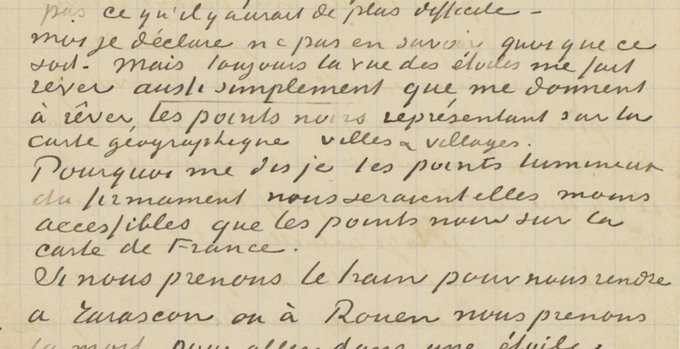 pas ce qu'il y aurait de plus difficile -
moi je déclare ne pas en savoir quoi que ce
soit. Mais toujours la vue des étoiles me fait
rêver aussi simplement que me donnent
à rêver les points noirs représentant sur la
carte géographique villes & villages.
Pourquoi me dis je les points lumineux
du firmament nous seraient elles moins
accessibles que les points noirs sur la
carte de France.
Si nous prenons le train pour nous rendre
a Tarascon ou à Rouen nous prenons
la mort pour aller dans une étoile.